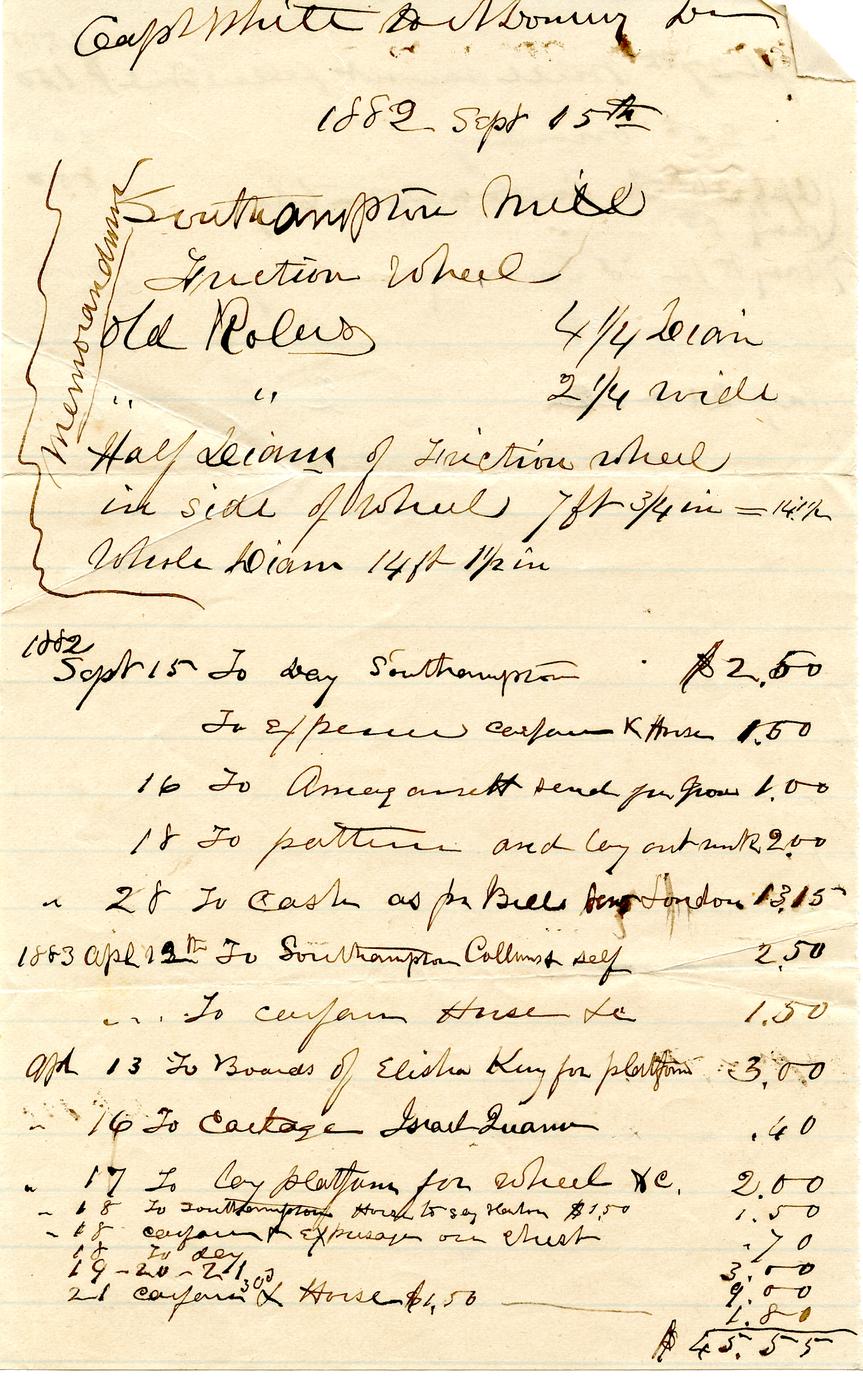 Capt White to N Dominy Dr
1882 Sept 15th
Memorandum
Southampton Mill
Friction Wheel
Old Rolers 4 1/4 Diam
" " 2 1/4 wide
Half Diam of Friction wheel
in side of Wheel 7 ft 3/4 in = 14 1 1/2
Whole Diam 14 ft 1 1/2 in
1882
Sept 15 To day Southampton $2.50
To Expense carfare & Horse 1.50
16 To Amagansett send for 1.00
18 To pattern and lay out work 2.00
" 28 To Cash as per Bill New London 13.15
1883 Apl 12th To Southampton Collins & self 2.50
" " To carfare Horse &c 1.50
Apl 13 To Boards of Elisha King for platform 3.00
" 16 To Cartage Israel .40
" 17 To lay platform for wheel &c. 2.00
" 18 To Southampton Horse to Sag Harbor $1.50 1.50
" 18 carfare & Expresage on Chest .70
18 To day 3.00
19-20-21 9.00
21 carfare 30 & Horse $1.50 1.80
$45.55